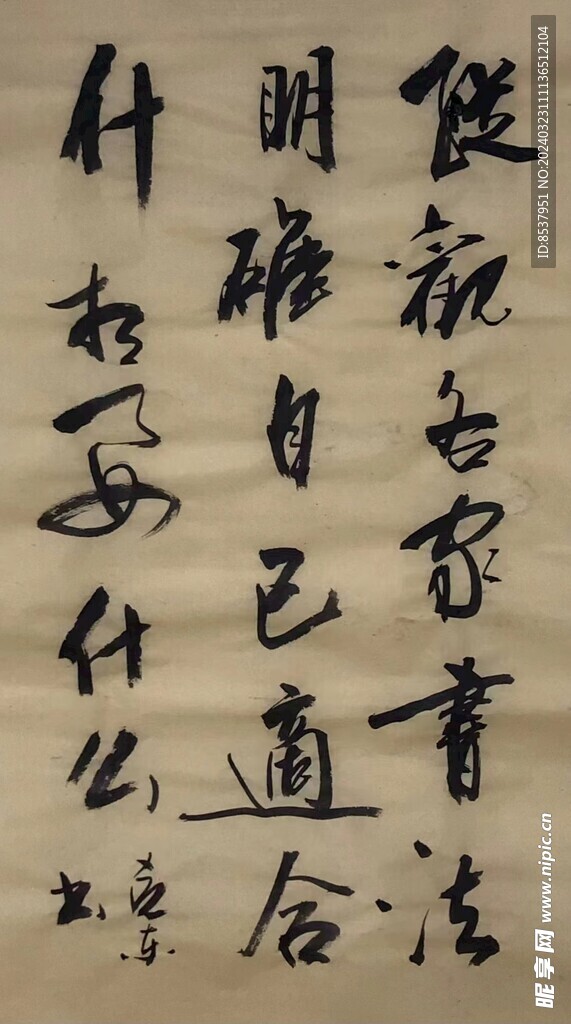 縱觀各家書法
明確自己適合
什要什么
书
ID:8537951 NO:20240323111136512104
昵享网 www.nipic.cn